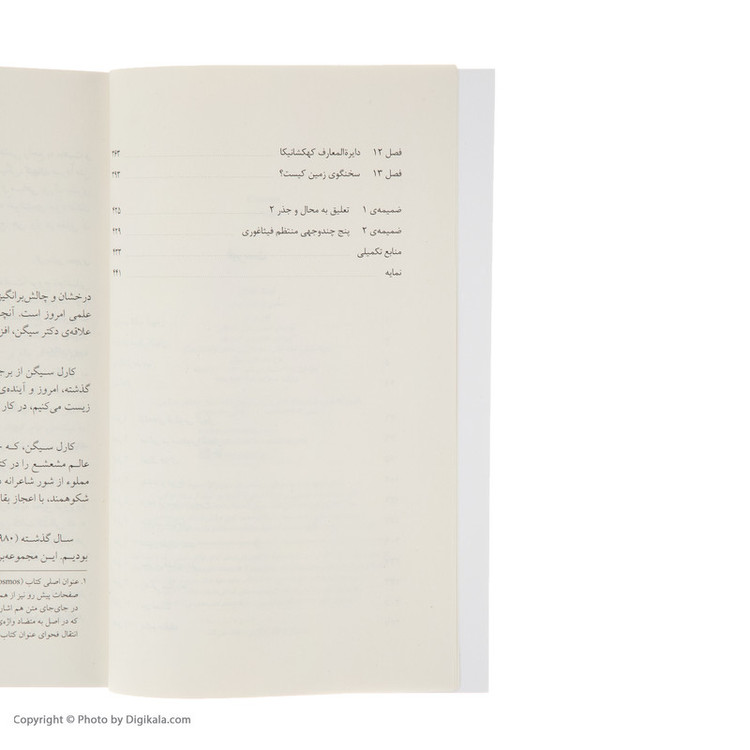 فصل ۱۲ دایرةالمعارف کهکشانیکا ۳۶۳
فصل ۱۳ سخنگوی زمین کیست؟ ۳۹۳
ضمیمه‌ی ۱ تعلیق به محال و جذر ۲ ۴۲۵
ضمیمه‌ی ۲ پنج چندوجهی منتظم فیثاغوری ۴۲۹
منابع تکمیلی ۴۳۳
نمایه ۴۴۱
درخشان و چالش‌برانگیز
علمی امروز است. آنچه
علاقه‌ی دکتر سیگن، افز
کارل سیگن از برج
گذشته، امروز و آینده‌ی
زیست می‌کنیم، در کار
کارل سیگن، که
عالم مشعشع را در کتا
مملوء از شور شاعرانه
شکوهمند، با اعجاز بقا
سال گذشته (۹۸۰
بودیم. این مجموعه‌بر
۱. عنوان اصلی کتاب (osmos
صفحات پیش رو نیز از هم
در جای‌جای متن هم اشار
که در اصل به متضاد واژه‌ی
انتقال فحوای عنوان کتاب
Copyright © Photo by Digikala.com